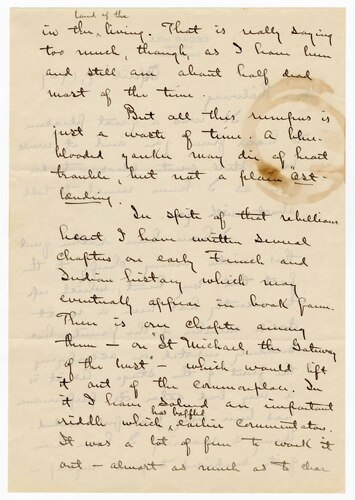 land of the
in the living. That is really saying
too much, though, as I have been
and still am about half dead
most of the time.
But all this rumpus is
just a waste of time. A blue-
blooded yankee may die of heart
trouble, but not a plain Ost-
lending.
In spite of that rebellious
heart I have written several
chapters on early French and
Indian history which may
eventually appear in book form.
There is one chapter among
them — on "St Michael, the Gateway
of the West" — which would lift
it out of the commonplace. In
it I have solved an important
has baffled
riddle which earlier commentators.
It was a lot of fun to work it
out — almost as much as to clear